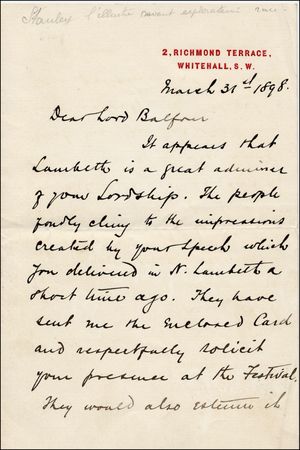 Stanley l'illustre savant explorateur
2, RICHMOND TERRACE,
WHITEHALL, S.W.
March 31st 1898.
Dear Lord Balfour
It appears that
Lambeth is a great admirer
of your Lordship. The people
fondly cling to the impressions
created by your speech which
you delivered in N. Lambeth a
short time ago. They have
sent me the enclosed Card
and respectfully solicit
your presence at the Festival.
They would also esteem it